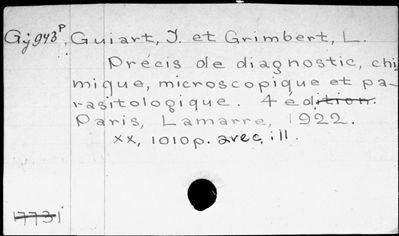 Gj943ᴾ. Guiart, J. et Grimbert, L.
Précis de diagnostic, chi
mique, microscopique et pa-
rasitologique. 4 édition.
Paris, Lamarre, 1922.
xx, 1010 p. avec ill.
17731